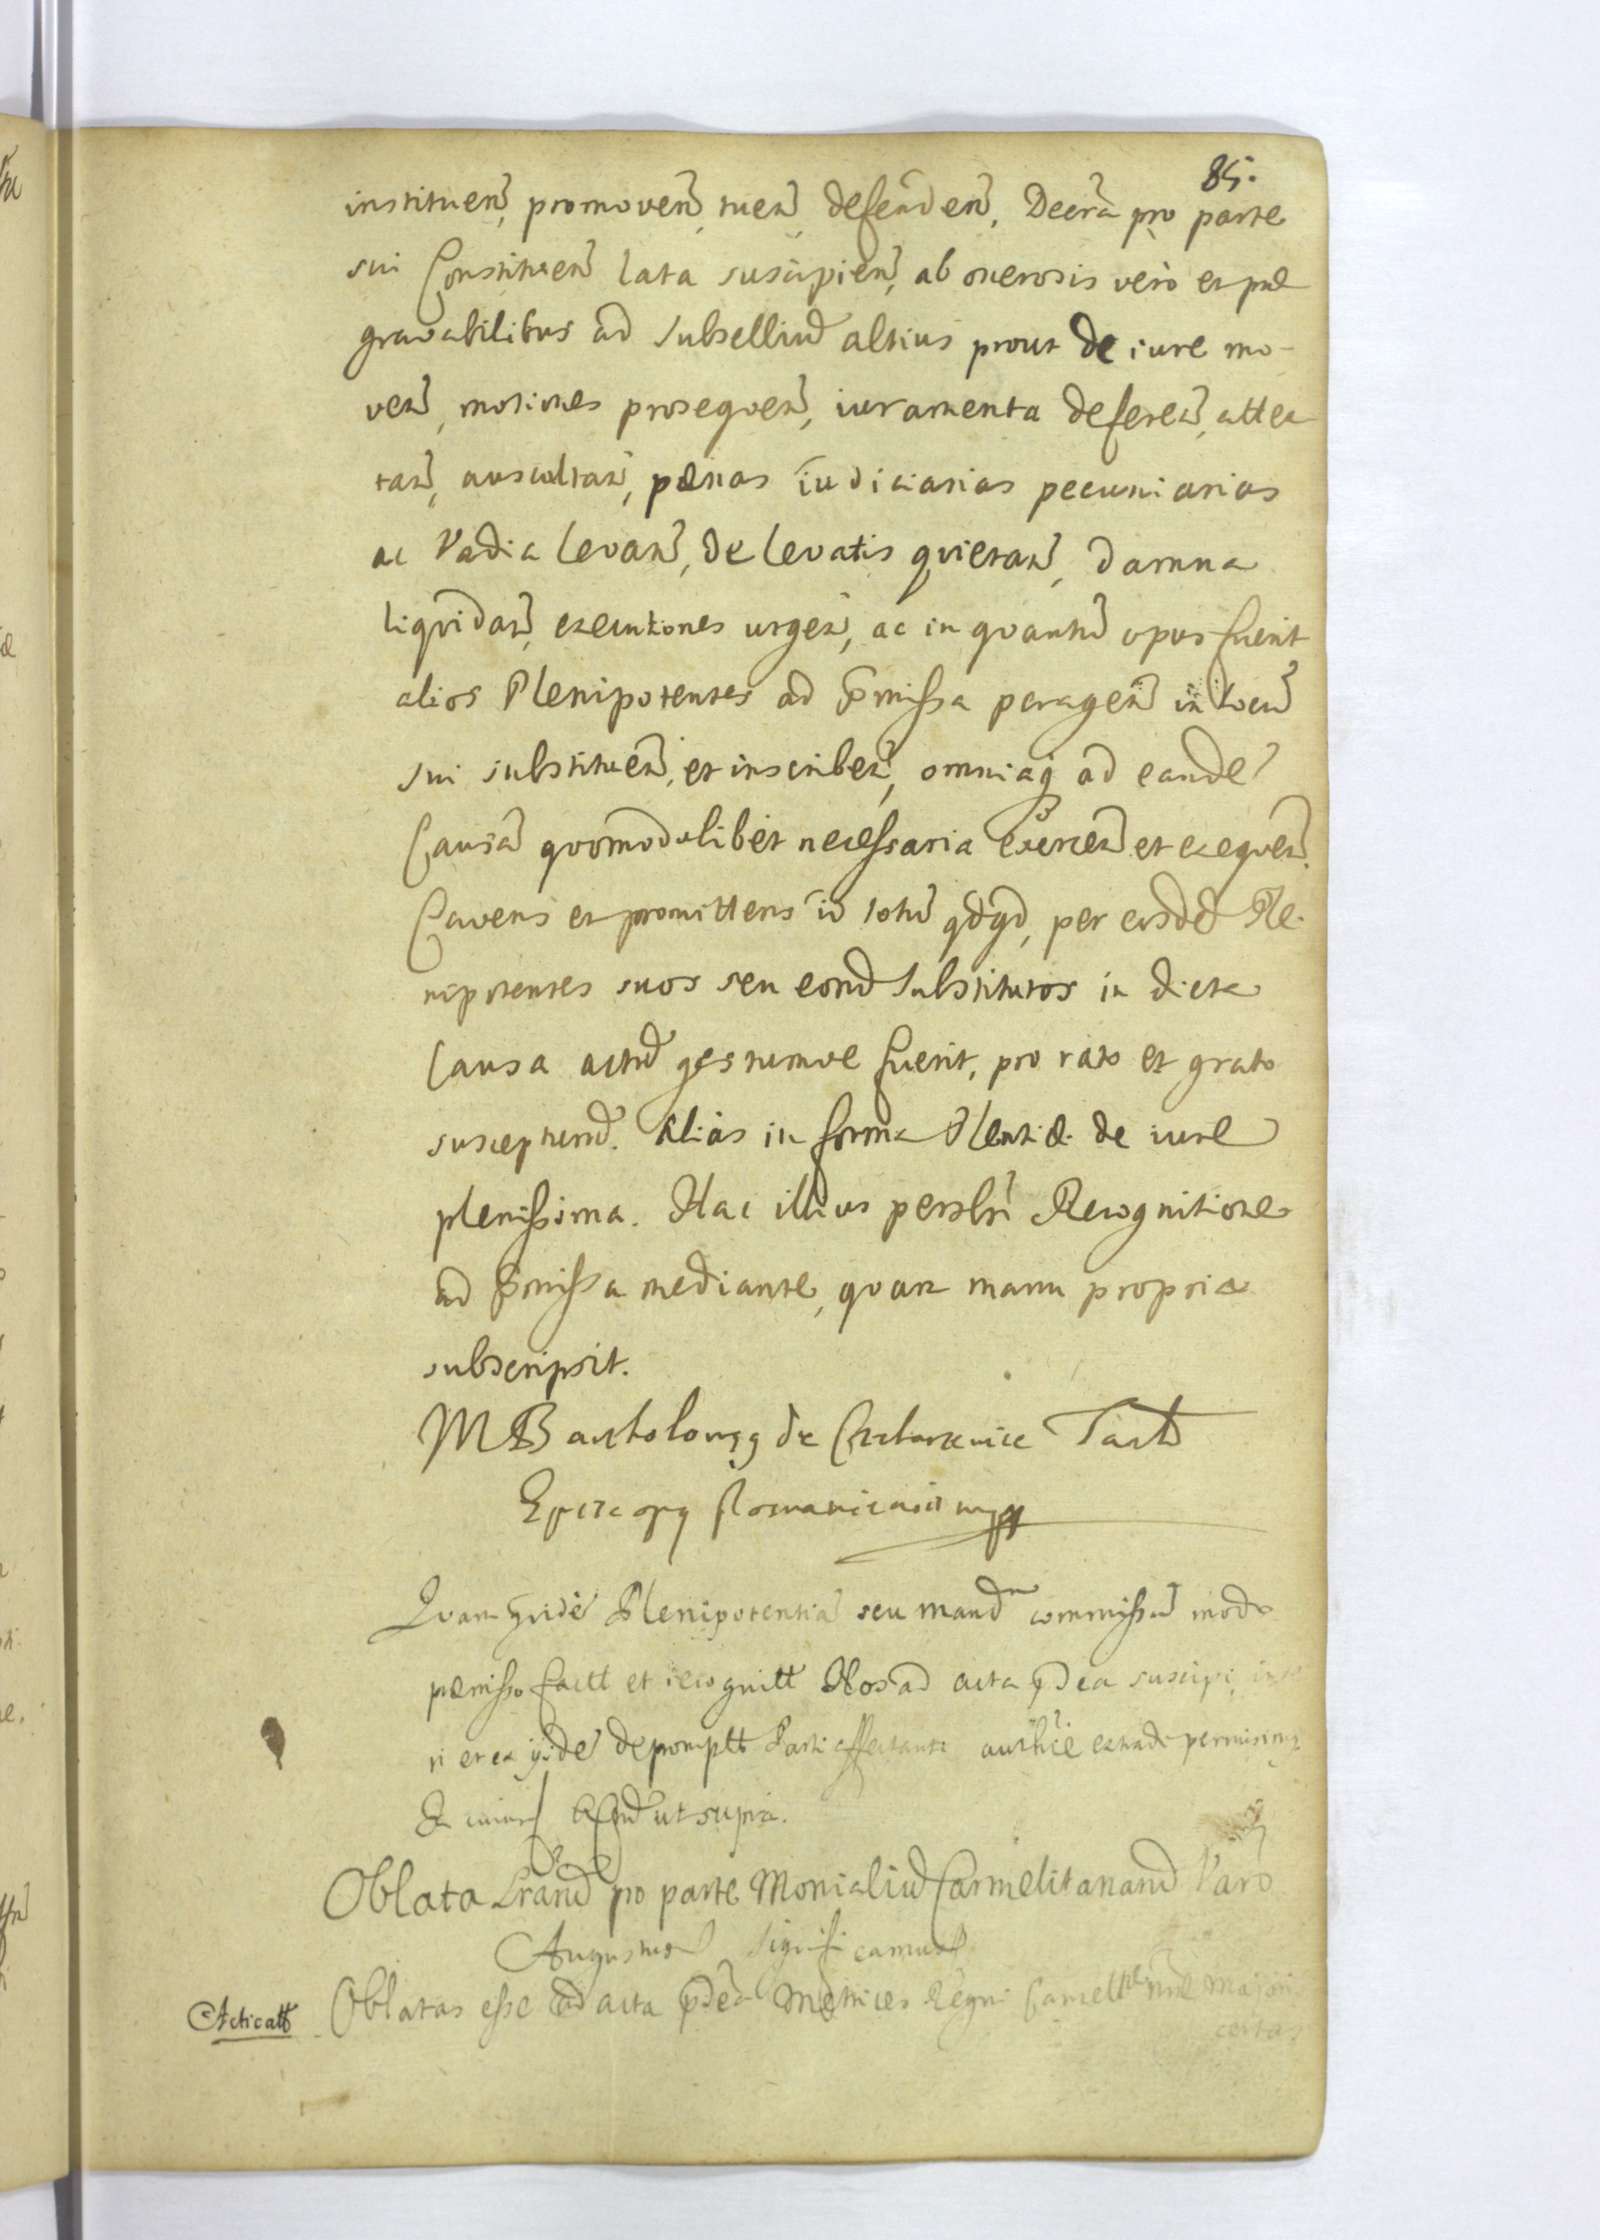 85.
instituen, promoven, tuen, defenden, Decra pro parte
sui Constituen lata suscipien, ab onerosis vero et præ
gravabilibus ad Subselliu altius prout de iure mo-
ven, motiones prosequen, iuramenta deferen, atten
tan, auscultan, pænas iudiciarias pecuniarias
ac Vadia levan, de levatis quietan, damna
liquidan, executiones urgen, ac in quantu opus fuerit
alios Plenipotentes ad Pmissa peragen in locu
sui substituen, et inscriben, omniaq ad eande
Causa quomodolibet necessaria exercen et exequen.
Cavens et promittens id totu qdqd, per eosde Ple-
nipotentes suos seu eoru Substitutos in dicta
Causa actu gestumve fuerit, pro rato et grato
suscepturu. Alias in forma Plentiæ de iure
plenissima. Hac illius persli Recognitione
ad Pmissa mediante, quam manu propria
subscripsit.
M Bartholomeg de Tarlo
Episcopg mpp
Quam quide Plenipotentia seu mand commissu modo
pæmisso factt et recognitt Nos ad acta pdca suscipi,
ri et ex ijsde depromptt Parti affectanti authce extrade permisimg
ut supra.
Oblata Lraru pro parte Monialiu Carmelitanaru Varo
Augustus significamus
Acticatt Oblatas esse ad acta pdca Metrices Regni Cancellr mre majoris
certas